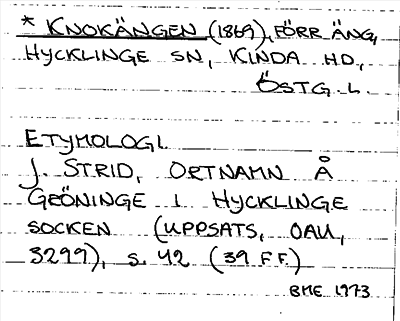 * KNOKÄNGEN (1869), FÖRR ÄNG,
HYCKLINGE SN, KINDA HD.,
ÖSTG. L.
ETYMOLOGI
J. STRID, ORTNAMN Å
GRÖNINGE I HYCKLINGE
SOCKEN (UPPSATS, OAU,
3299), S. 42 (39 F.F.)
BME 1973